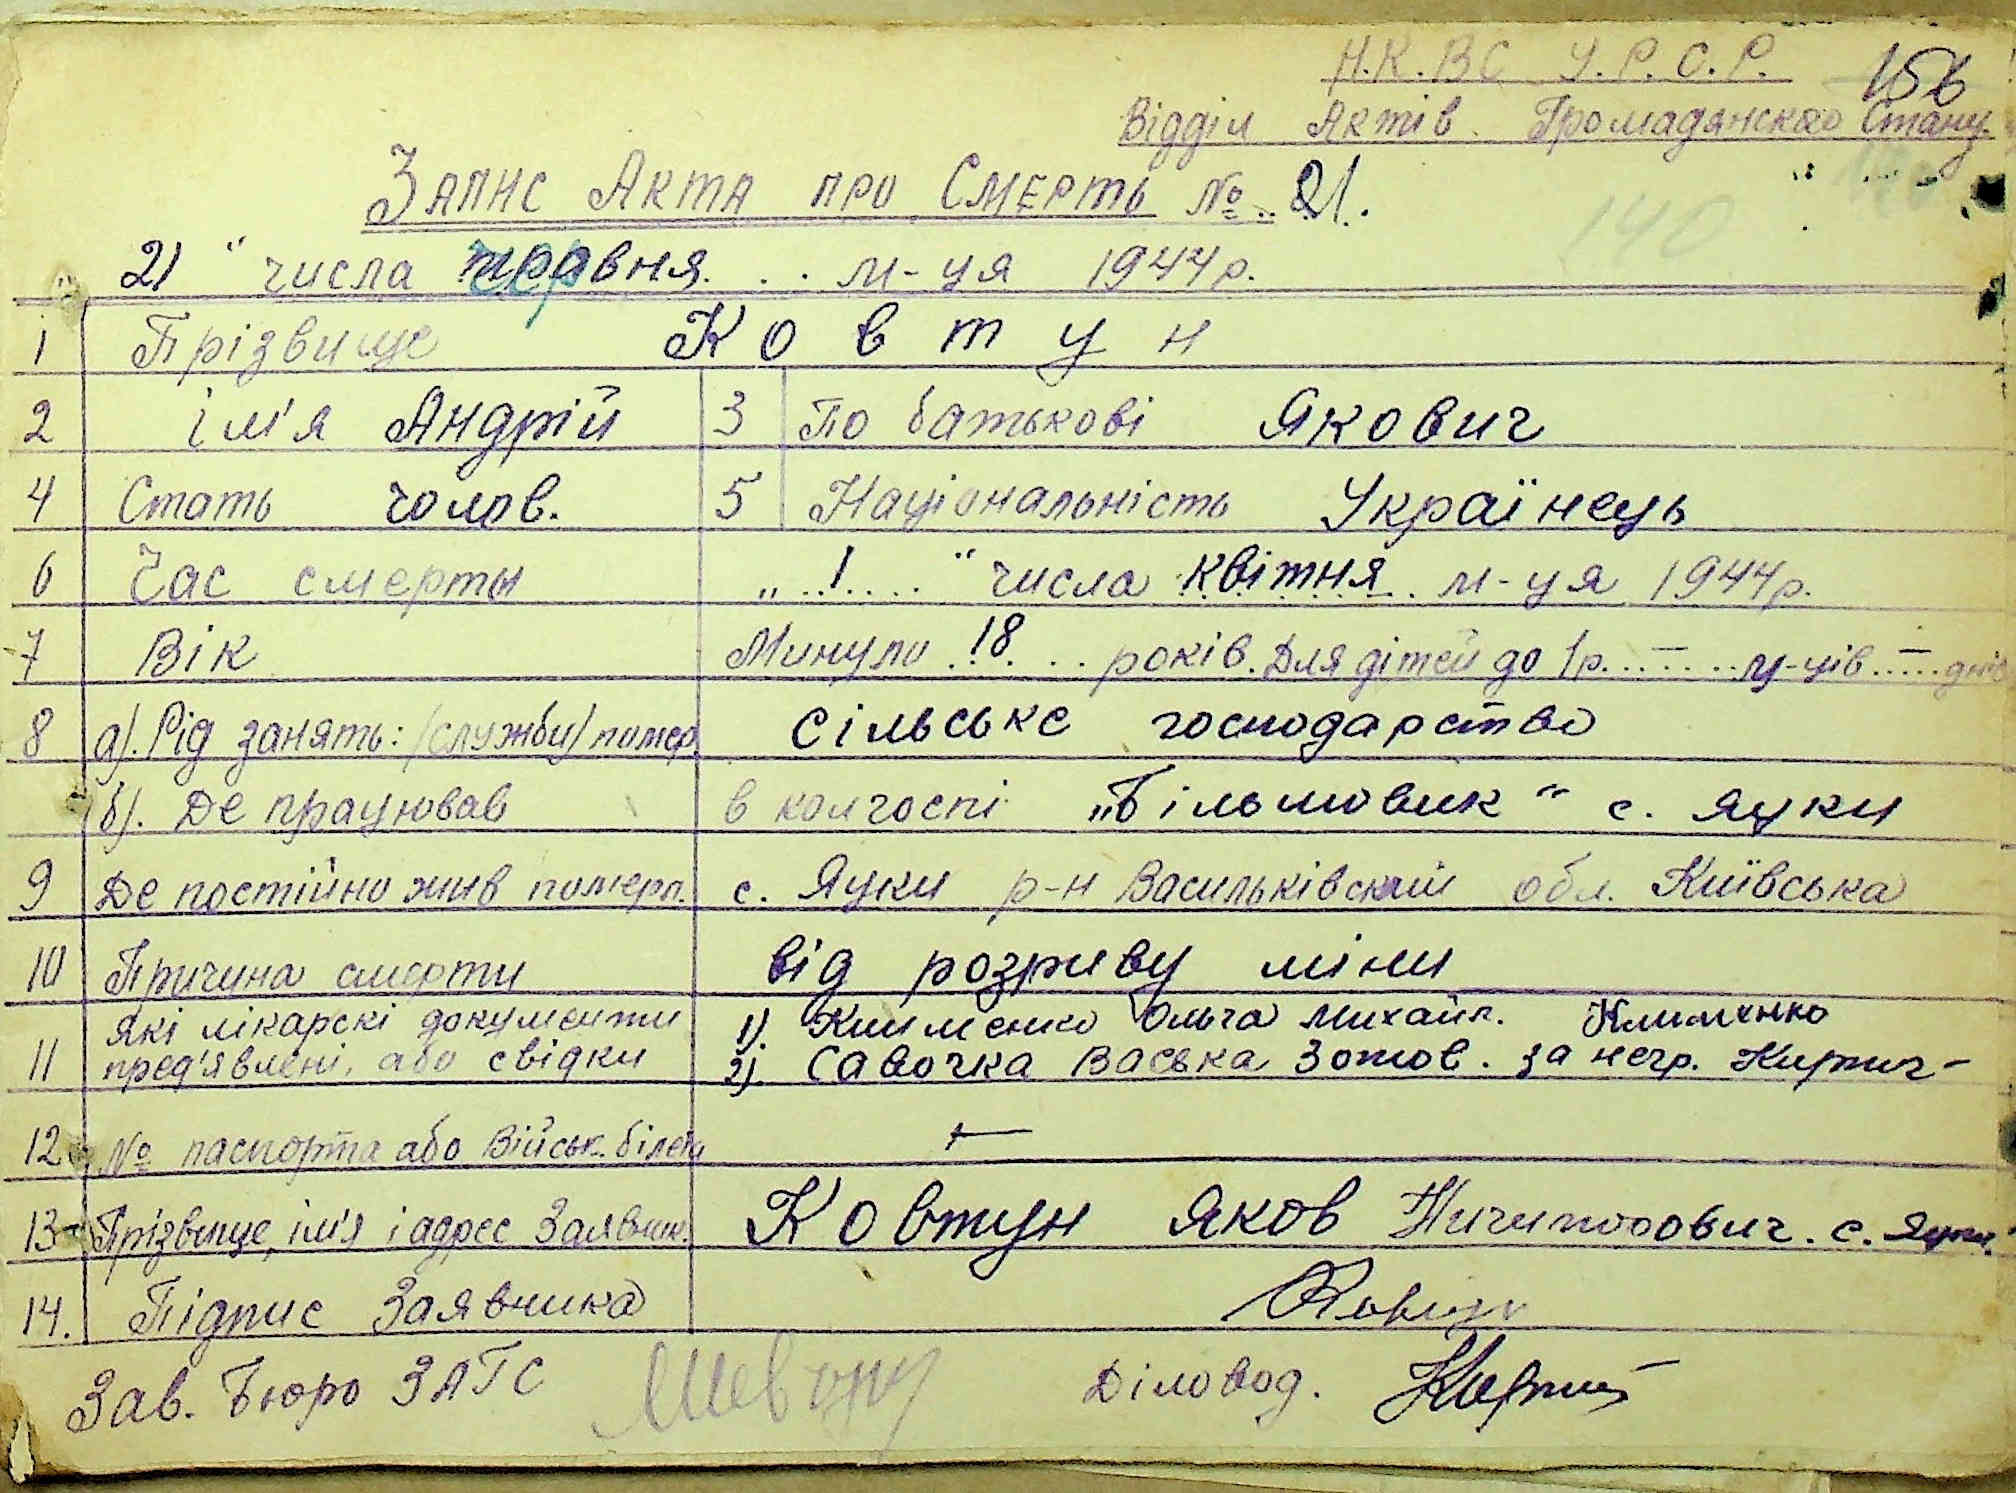 Н.К.ВС У.Р.С.Р. 156
Відділ Актів Громадянскаго Стану
140
Запис Акта про Смерть № 21.
21 " числа червня. . . м-ця 1944р.
1 Прізвище Ковтун
2 ім'я Андрій 3 По батькові Якович
4 Стать чолов. 5 Національність Українець
6 Час смерты „ . . 1 . . . . " числа квітня . м-ця 1944р.
7 Вік Минуло . 18 . . . років. Для дітей до 1р. . . – . . . м-ців . . – . . днів
8 а). Рід занять: /служби/ помер. сільське господарство
б). Де працював в колгоспі „Більшовик" с. Яцки
9 Де постійно жив померл. с. Яцки р-н Васильківский обл. Київська
10 Причина смерти від розриву міни
11 Які лікарскі документи 1). Клименко Ольга Михайл. Клименко
пред'явлені, або свідки 2). Савочка Васька Зотов. за негр. Кирпич-
12 № паспорта або Військ. білета —
13 Прізвище, ім'я і адрес Заявник. Ковтун Яков Ничипорович. с. Яцки.
14. Підпис Заявника Ковтун
Зав. Бюро ЗАГС Діловод.